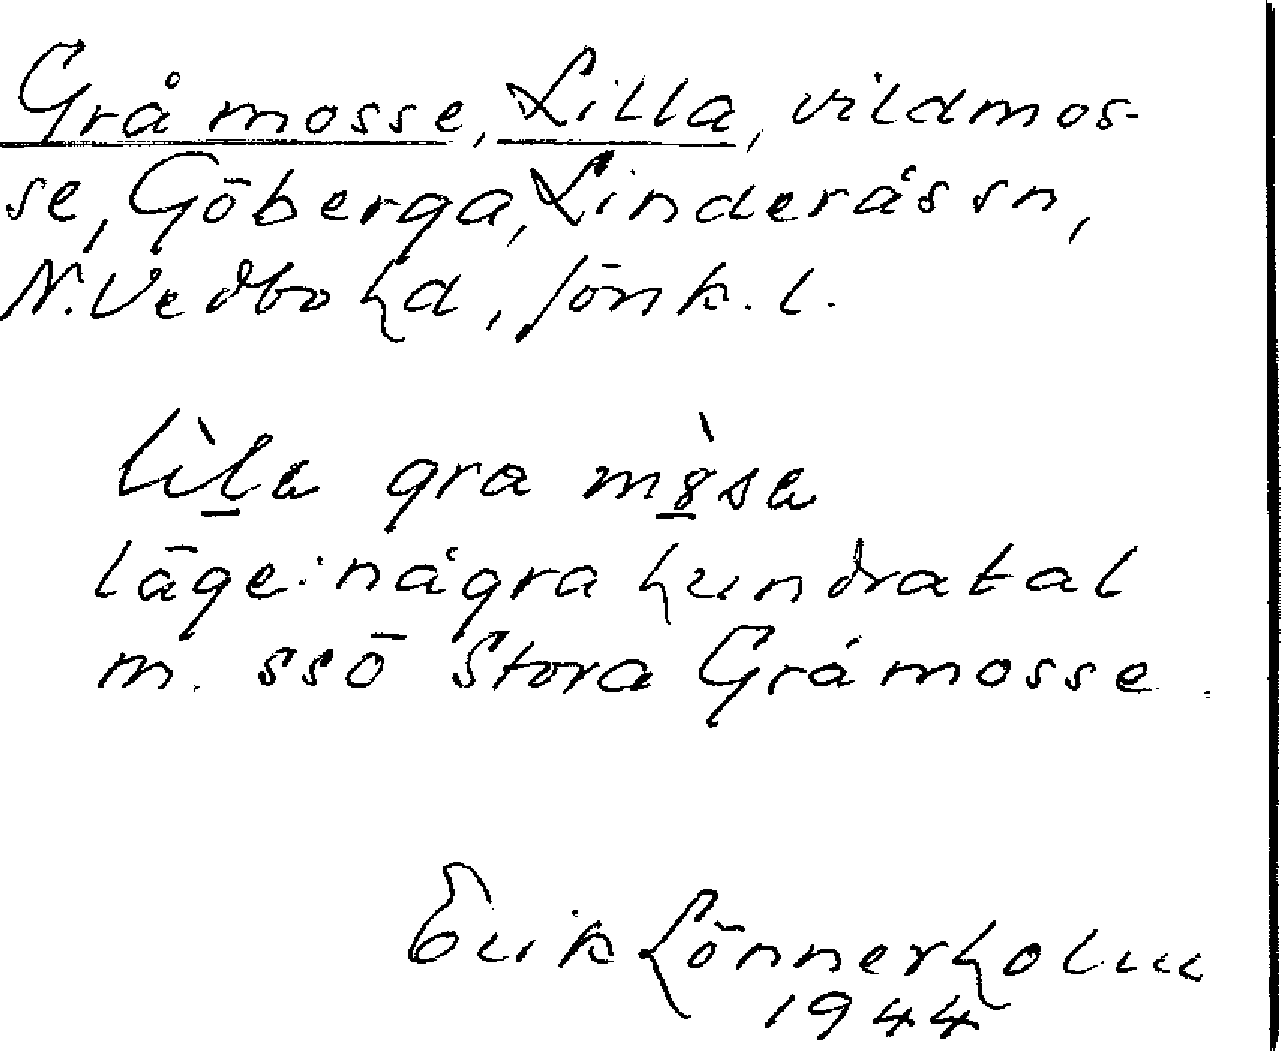 Gråmosse, Lilla, vildmos-
se, Göberga, Linderås sn,
N. Vedbo hd, Jönk. l.
lìl̠a gra mò̠sa
läge: några hundratal
m. ssö Stora Gråmosse.
Erik Lönnerholm
1944